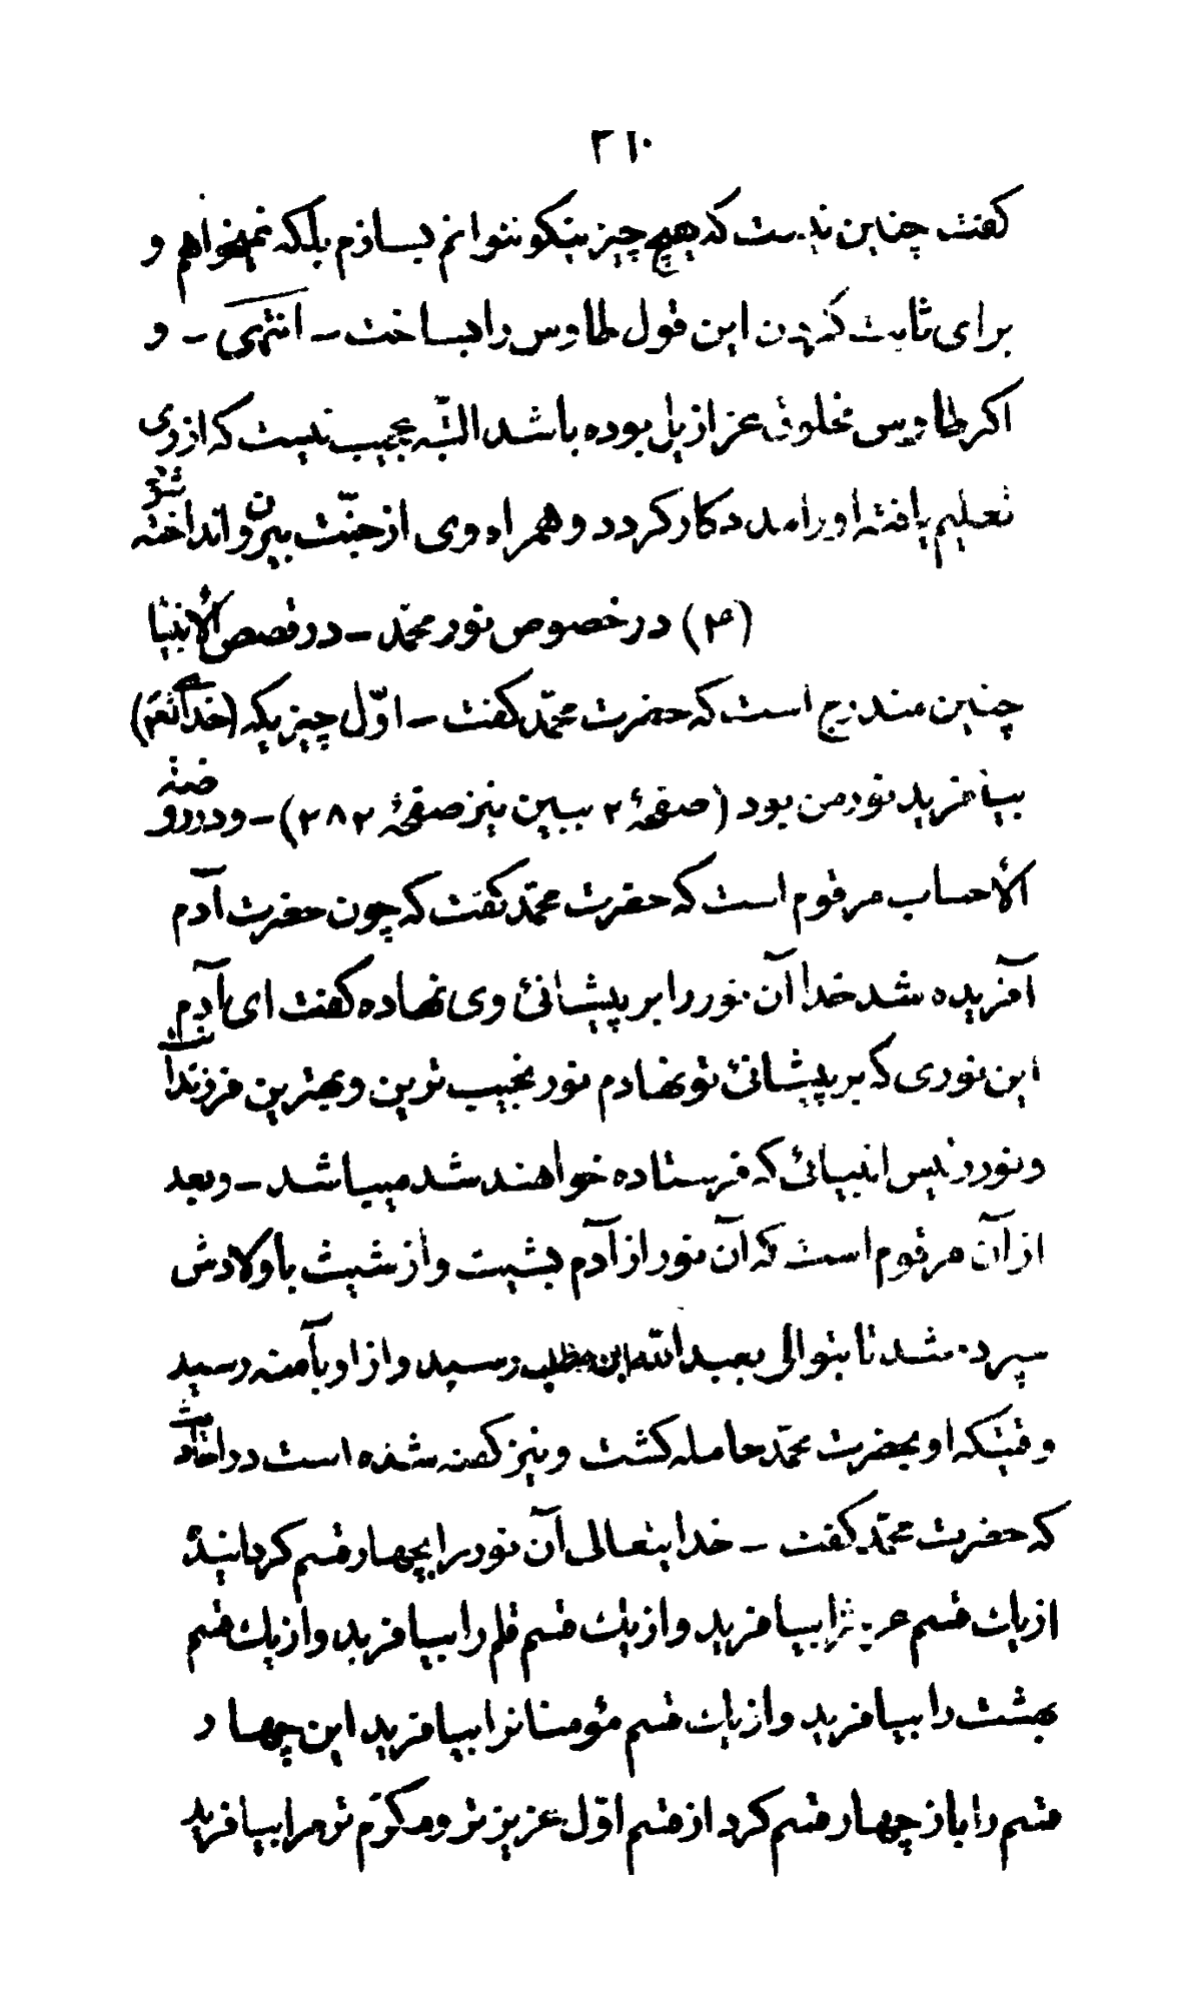 ۲۱۰
کفت چنین نیست که هیچ چیز نیکو نتوانم بسازم بلکه نمیخواهم و
برای ثابت کردن این قول طاوس را بساخت ـ انتهی ـ و
اکر طاوس مخلوق عزازیل بوده باشد البتّه عجیب نیست که از وی
تعلیم یافته او را مددکار کردد و همراه وی از جنّت بیرون انداخته شود
(۴) در خصوص نور محمّد ـ در قصص الأنبیا
چنین مندرج است که حضرت محمّد کفت ـ اوّل چیزیکه (خدایتعم)
بیافرید نور من بود (صفحهٔ ۲ ببین نیز صفحهٔ ۲۸۲) ـ و در روضة
الأحساب مرقوم است که حضرت محمّد کفت که چون حضرت آدم
آفریده شد خدا آن نور را بر پیشانئ وی نهاده کفت ای آدم
این نوری که بر پیشانئ تو نهادم نور نجیب ترین و بهترین فرزندانت
و نور رئیس انبیائی که فرستاده خواهند شد میباشد ـ و بعد
از آن مرقوم است که آن نور از آدم بشیث و از شیث باولادش
سپرده شد تا بتوالی بعبد الله ابن مطلب رسید و از او بآمنه رسید
وقتیکه او بحضرت محمّد حامله کشت و نیز کفته شده است در احادیث
که حضرت محمّد کفت ـ خدایتعالی آن نور را بچهار قسم کردانیدهٔ
از یك قسم عرش را بیافرید و از یك قسم قلم را بیافرید و از یك قسم
بهشت را بیافرید و از یك قسم مؤمنانرا بیافرید این چهار
قسم را باز چهار قسم کرد از قسم اوّل عزیزتر و مکرّم تر مرا بیافرید